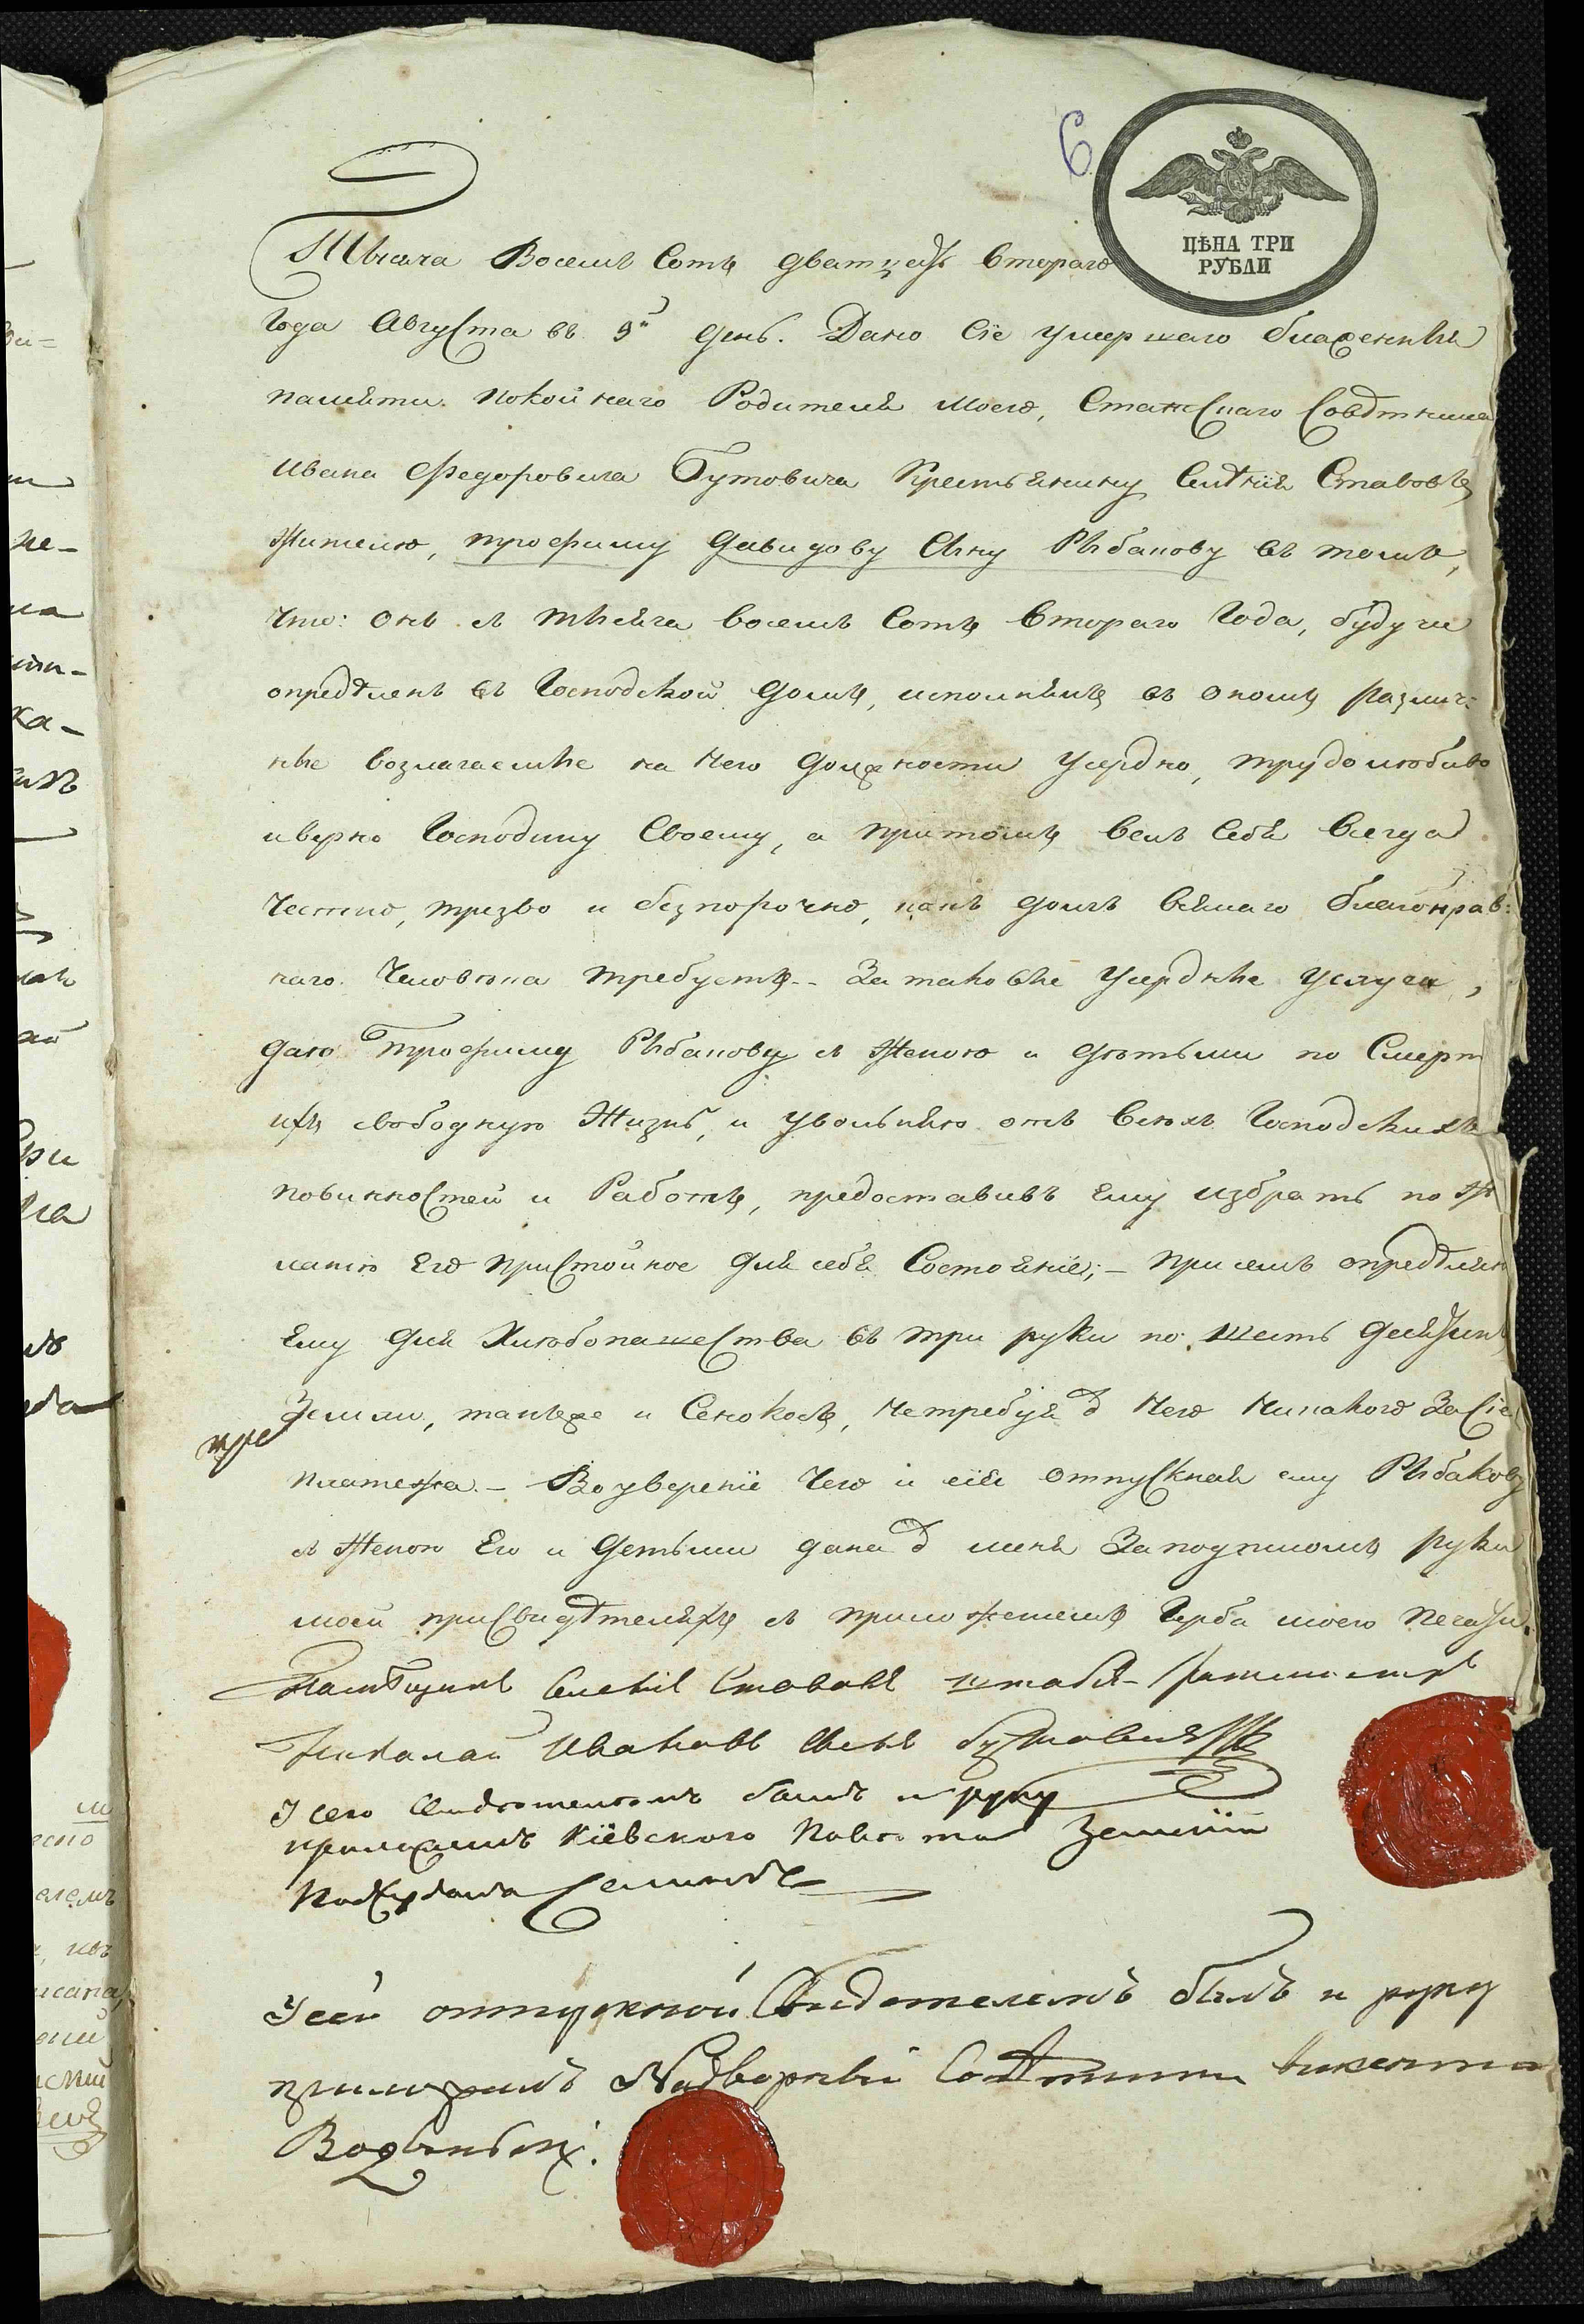 6
ЦѢНА ТРИ
РУБЛИ
Тысяча Восемъ Сотъ дватцать втораго
Года Августа въ 9й день. Дано Сіе умершаго блаженныя
памяти покойнаго Родителя моего, Статскаго Совѣтника
Ивана Федоровича Бутовича Крестьянину Селѣнія Ставовъ
Жителю, трофиму давидову Сыну Рыбакову въ томъ,
что: онъ съ тысяча восемъ Сотъ втораго Года, будучи
опредѣленъ въ Господской домъ, исполнялъ въ ономъ различ:
ные возлагаемые на него должности усердно, трудолюбиво
и верно Господину Своему, а притомъ велъ Себя всегда
Честно, трезво и безпорочно, какъ долгъ всякаго благонрав:
наго Человѣка требуетъ.. За таковые усердные услуги,
даю Трофиму Рыбакову съ Женою и дѣтьми по Смерт
ихъ свободную Жизнь, и увольняю отъ всѣхъ Господскихъ
повинностей и Работъ, предоставивъ ему избрать по ж
ланію Его пристойное для себя Состояніе; – при семъ опредѣляю
Ему для Хлѣбопашества въ три руки по шесть десятинъ
Земли, такъже и Сенокосъ, нетребуя отъ него никакого За Сіе
пла­тежа. – Во увереніе чего и сія отпускная ему Рыбакову
съ Женою Его и детьми дана отъ меня За подписомъ руки
моей при Свидѣтеляхъ съ приложеніемъ Герба моего печати.
Помѣщикъ Селенія Ставовъ штабсъ-ротмистръ
Николай Ивановъ Сынъ Бутовичъ
У сего Свидѣтелемъ былъ и руку
приложилъ Кіевскаго Повѣта Земскій
Подсудокъ
У сей отпускной Свидетелемъ былъ и руку
приложилъ Надворный Совѣтникъ Викентий